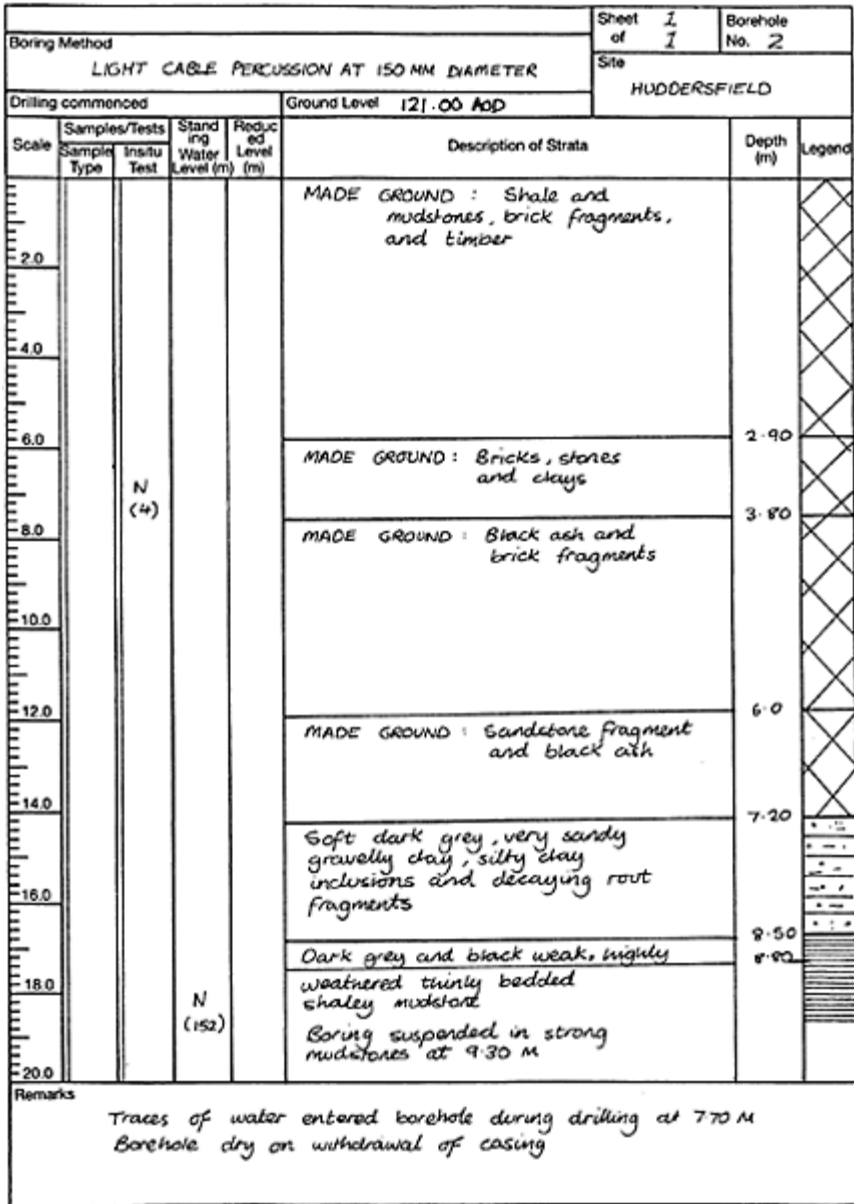 Sheet 1
of 1
Borehole
No. 2
Boring Method
LIGHT CABLE PERCUSSION AT 150 MM DIAMETER
Site
HUDDERSFIELD
Drilling commenced
Ground Level 121.00 AOD
Scale
Samples/Tests
Sample
Type
Insitu
Test
Stand
ing
Water
Level (m)
Reduc
ed
Level
(m)
Description of Strata
Depth
(m)
Legend
MADE GROUND : Shale and
mudstones, brick fragments,
and timber
2.0
4.0
6.0
2.90
MADE GROUND : Bricks, stones
and clays
N
(4)
3.80
8.0
MADE GROUND : Black ash and
brick fragments
10.0
12.0
6.0
MADE GROUND : Sandstone fragment
and black ash
14.0
7.20
Soft dark grey, very sandy
gravelly clay, silty clay
inclusions and decaying root
fragments
16.0
8.50
Dark grey and black weak, highly
8.80
weathered thinly bedded
shaley mudstone
18.0
N
(152)
Boring suspended in strong
mudstones at 9.30 M
20.0
Remarks
Traces of water entered borehole during drilling at 7.70 M
Borehole dry on withdrawal of casing